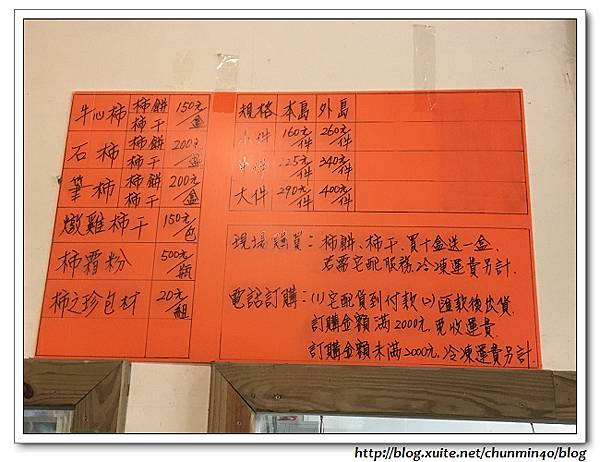 牛心柿 柿餅 柿干 150元/盒
石柿 柿餅 柿干 200元/盒
筆柿 柿餅 柿干 200元/盒
燉雞柿干 150元/包
柿霜粉 500元/瓶
柿之珍包材 20元/組
規格 本島 外島
小件 160元/件 260元/件
中件 225元/件 340元/件
大件 290元/件 400元/件
現場購買：柿餅、柿干、買十盒送一盒.
若需宅配服務,冷凍運費另計.
電話訂購：(1)宅配貨到付款(2)匯款後出貨.
訂購金額滿2000元.免收運費.
訂購金額未滿2000元.冷凍運費另計.
http://blog.xuite.net/chunmin40/blog